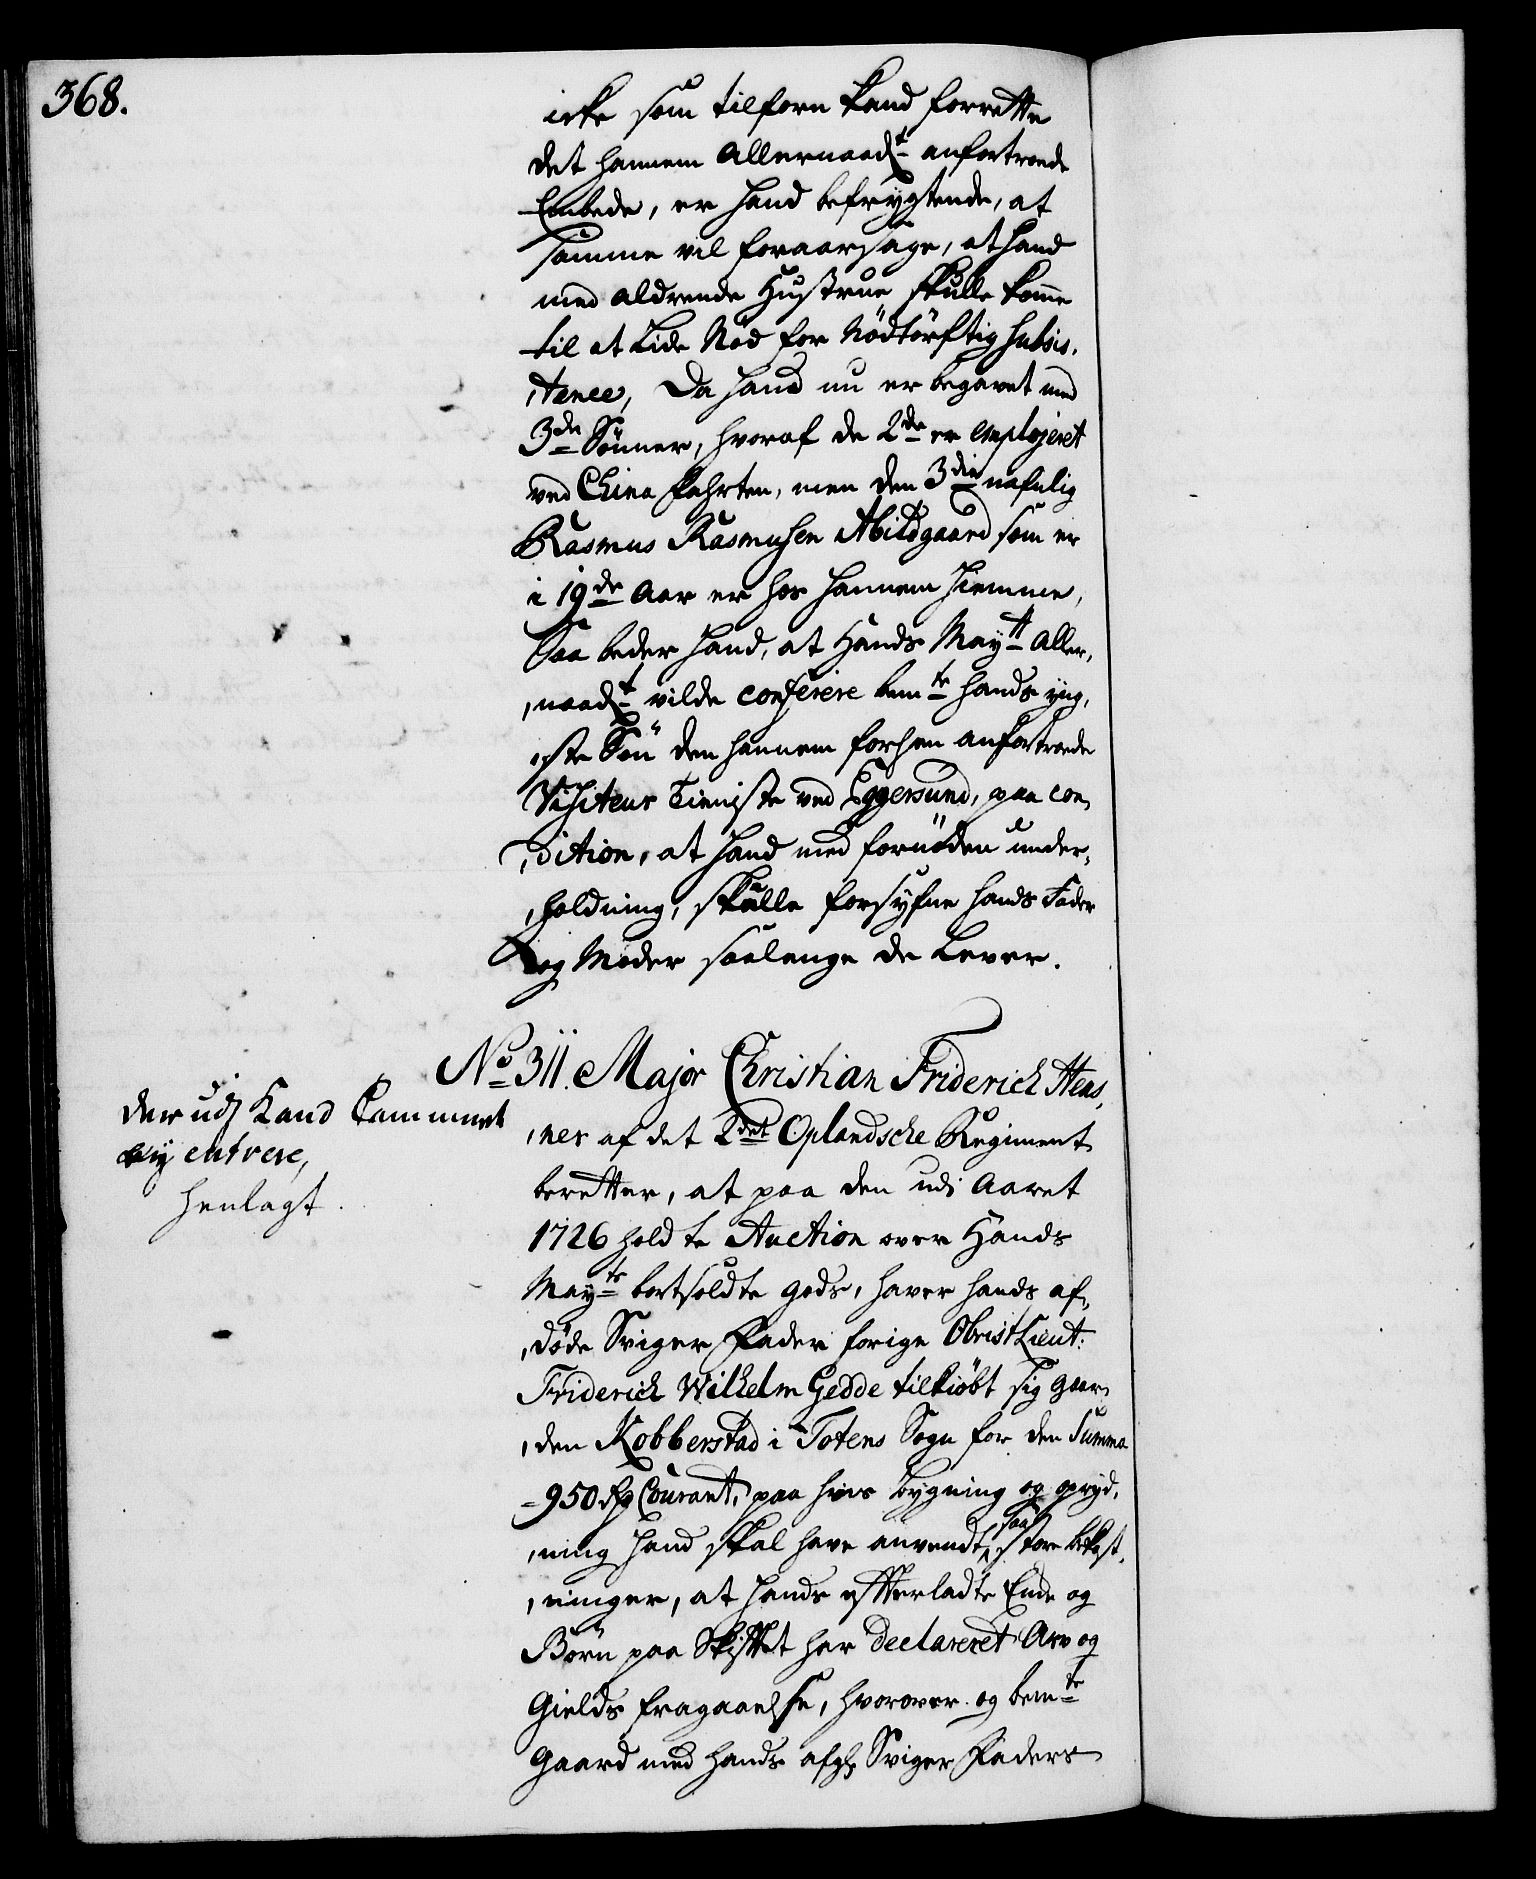 368.
icke som tilforn kand forrette
det hannem Allernaadt anfortroede
Embede, er hand befrygtende, at
samme vil foraarsage, at hand
med aldrende Hustrue skulle komme
til at Lide Nød for Nødtørftig subsis,
,tence, Da hand nu er begavet med
3de Sønner, hvoraf de 2de er emplojeret
ved China Fahrten, men den 3die nafnlig
Rasmus Rasmusen Abildgaard som er
i 19de Aar er hos hannem hiemme,
Saa beder hand, at Hands Maytt Aller,
,naadt vilde conferere bemte hands yng,
,ste Søn den hannem forhen anfortroede
Visiteur Tieniste ved Eggersund, paa con,
,dition, at hand med fornøden under,
,holdning, skulle forsyfne hands Fader
og Moder saalenge de Lever.
No 311. Major Christian Friderich Stens,
,ner af det 2det Oplandsche Regiment
beretter, at paa den udi Aaret
1726 holdte Auction over Hands
Mayts bortsoldte Gods, haver hands af,
,døde Sviger Fader forige Obrist Lieut:
Friderich Wilhelm Gedde tilkiøbt sig Gaar,
,den Kobberstad i Totens Sogn for den Summa
950 rd Courant, paa hvis bygning og opryd,
,ning hand skal have anvendt saa store bekost,
,ninger, at hands efterladte Enke og
Børn paa Skiftet har Declareret Arv og
Gields fragaaelse, hvorover og bemte
Gaard med hands afg: Sviger Faders
der udj Kand Cammeret
ey entrere,
henlagt.